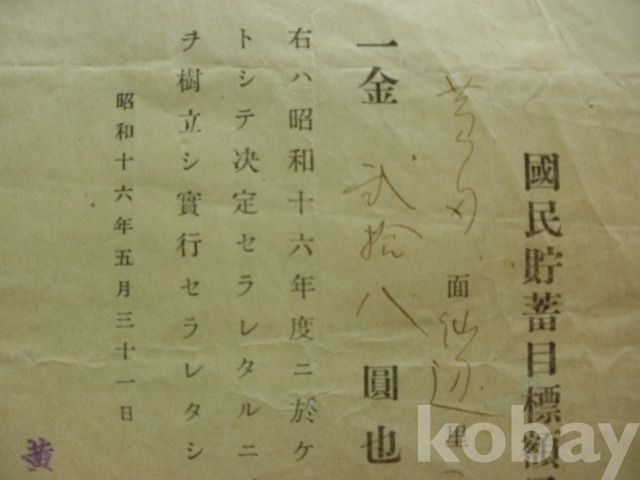 國民貯蓄目標額
面仙邊里
一金 貳拾八 圓也
右ハ昭和十六年度ニ於ケ
トシテ決定セラレタルニ
ヲ樹立シ實行セラレタシ
昭和十六年五月三十一日
黃
kobay